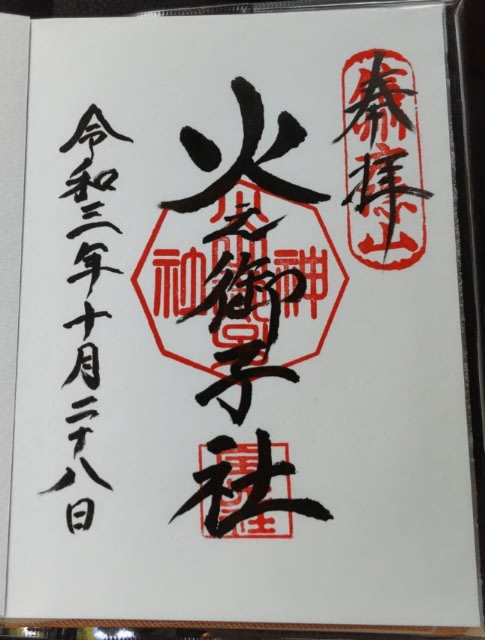 奉拝
火之御子社
令和三年十月二十八日